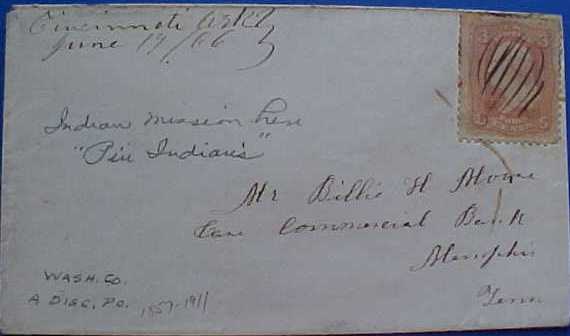 Cincinnati Arks
June 19/66
3 3
Indian mission here
"Pin Indians"
Mr Billie H Moore
Care Commercial Bank
Memphis
Tenn
WASH. CO.
A DISC. P.O. 1857-1911